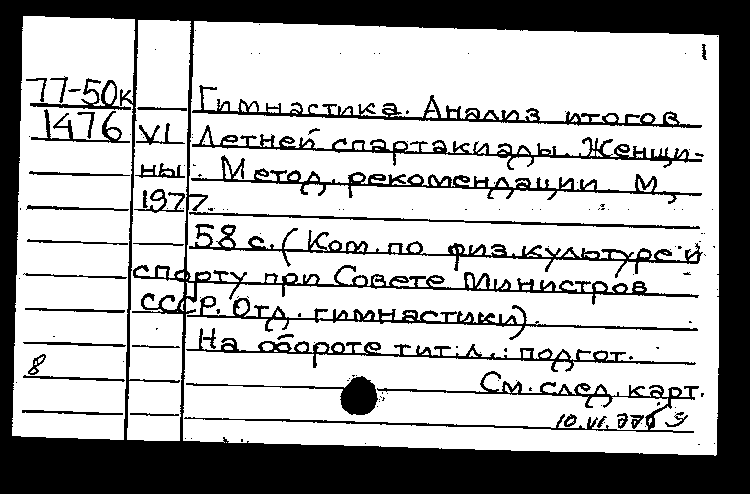 1
77-50к Гимнастика. Анализ итогов
1476 VI Летней спартакиады. Женщи-
ны. Метод. рекомендации. М.,
1977.
58 с. (Ком. по физ. культуре и
спорту при Совете Министров
СССР. Отд. гимнастики).
На обороте тит. л.: подгот.
8 См. след. карт.
10.VI.77